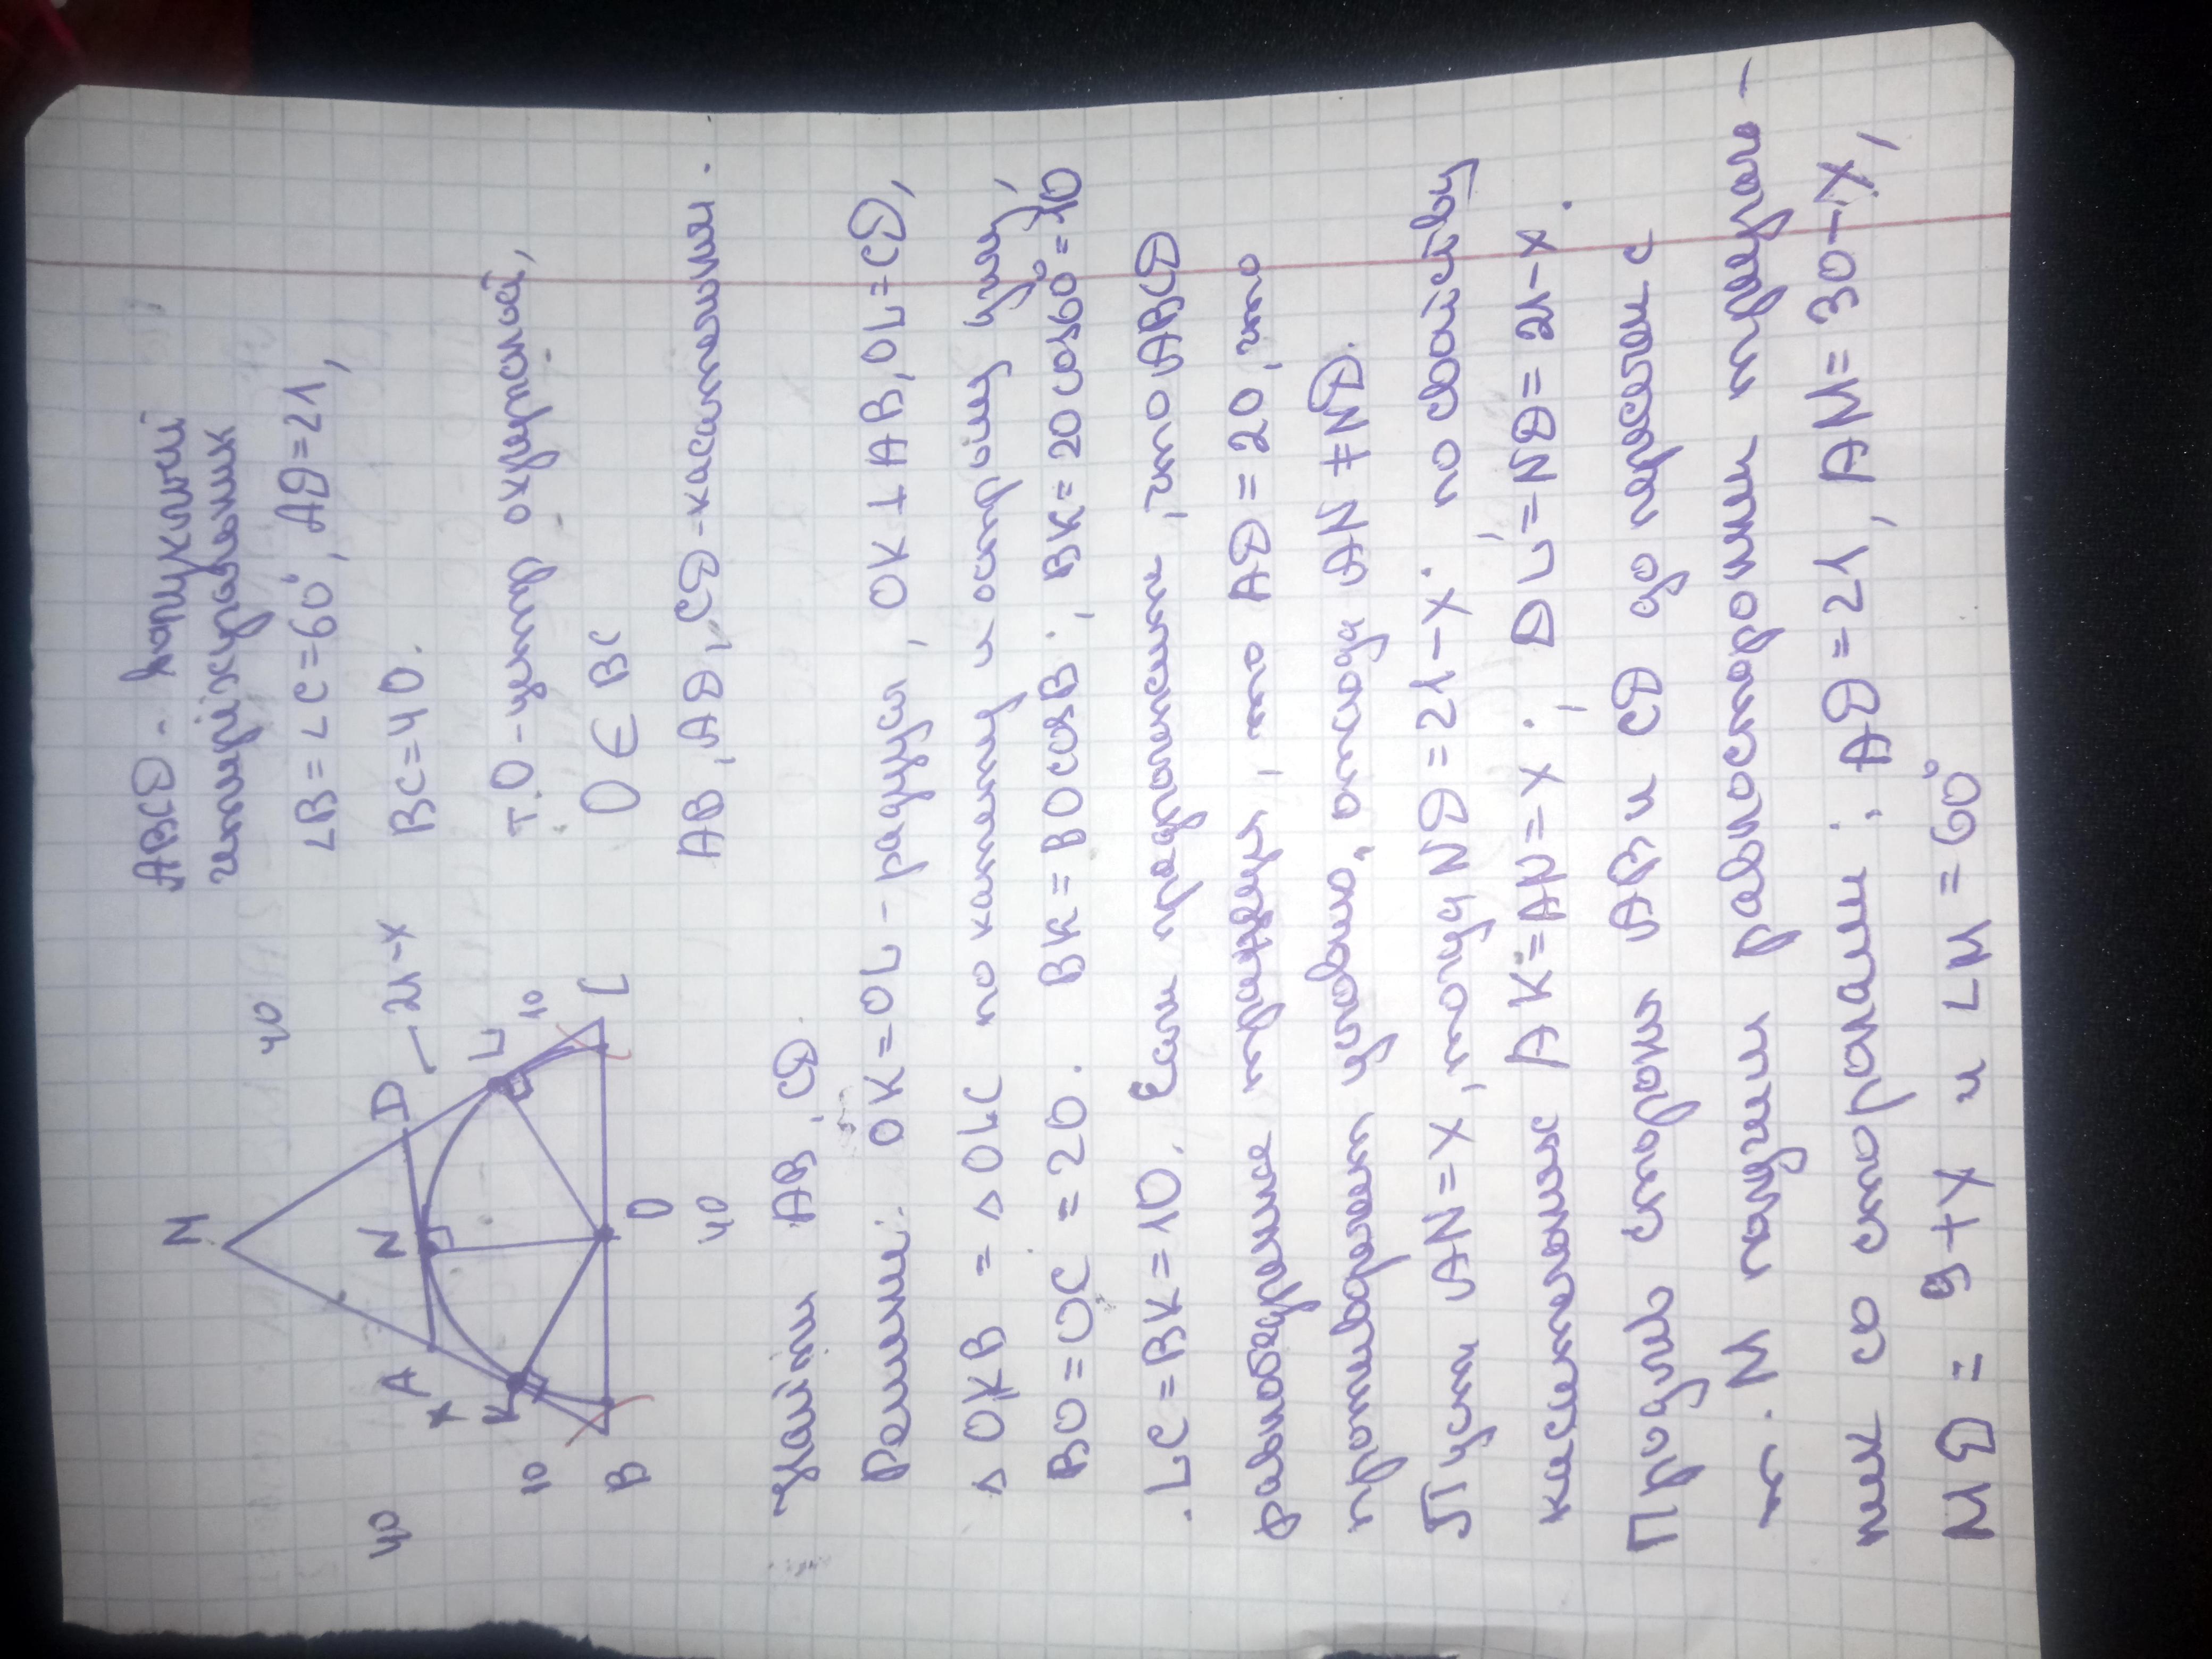 ABCD - выпуклый
четырёхугольник
∠B = ∠C = 60°, AD = 21,
BC = 40.
т. O - центр окружностей,
O ∈ BC
AB, AD, CD - касательные.
M
40
N
D
21-x
A
x
L
10
K
10
B
O
C
40
40
Найти AB, CD.
Решение: OK = OL - радиуса, OK ⊥ AB, OL = CD,
△ OKB = △ OLC по катету и острому углу,
BO = OC = 20. BK = BO cos B; BK = 20 cos 60° = 10
LC = BK = 10. Если предположить, что ABCD
равнобедренная трапеция, то AD = 20, что
противоречит условию, отсюда AN ≠ ND.
Пусть AN = x, тогда ND = 21 - x. по свойству
касательных AK = AN = x; DL = ND = 21 - x.
Продлив стороны AB и CD до пересечен. с
т. M получим равносторонний треуголь-
ник со сторонами: AD = 21, AM = 30 - x,
MD = 9 + x и ∠M = 60°